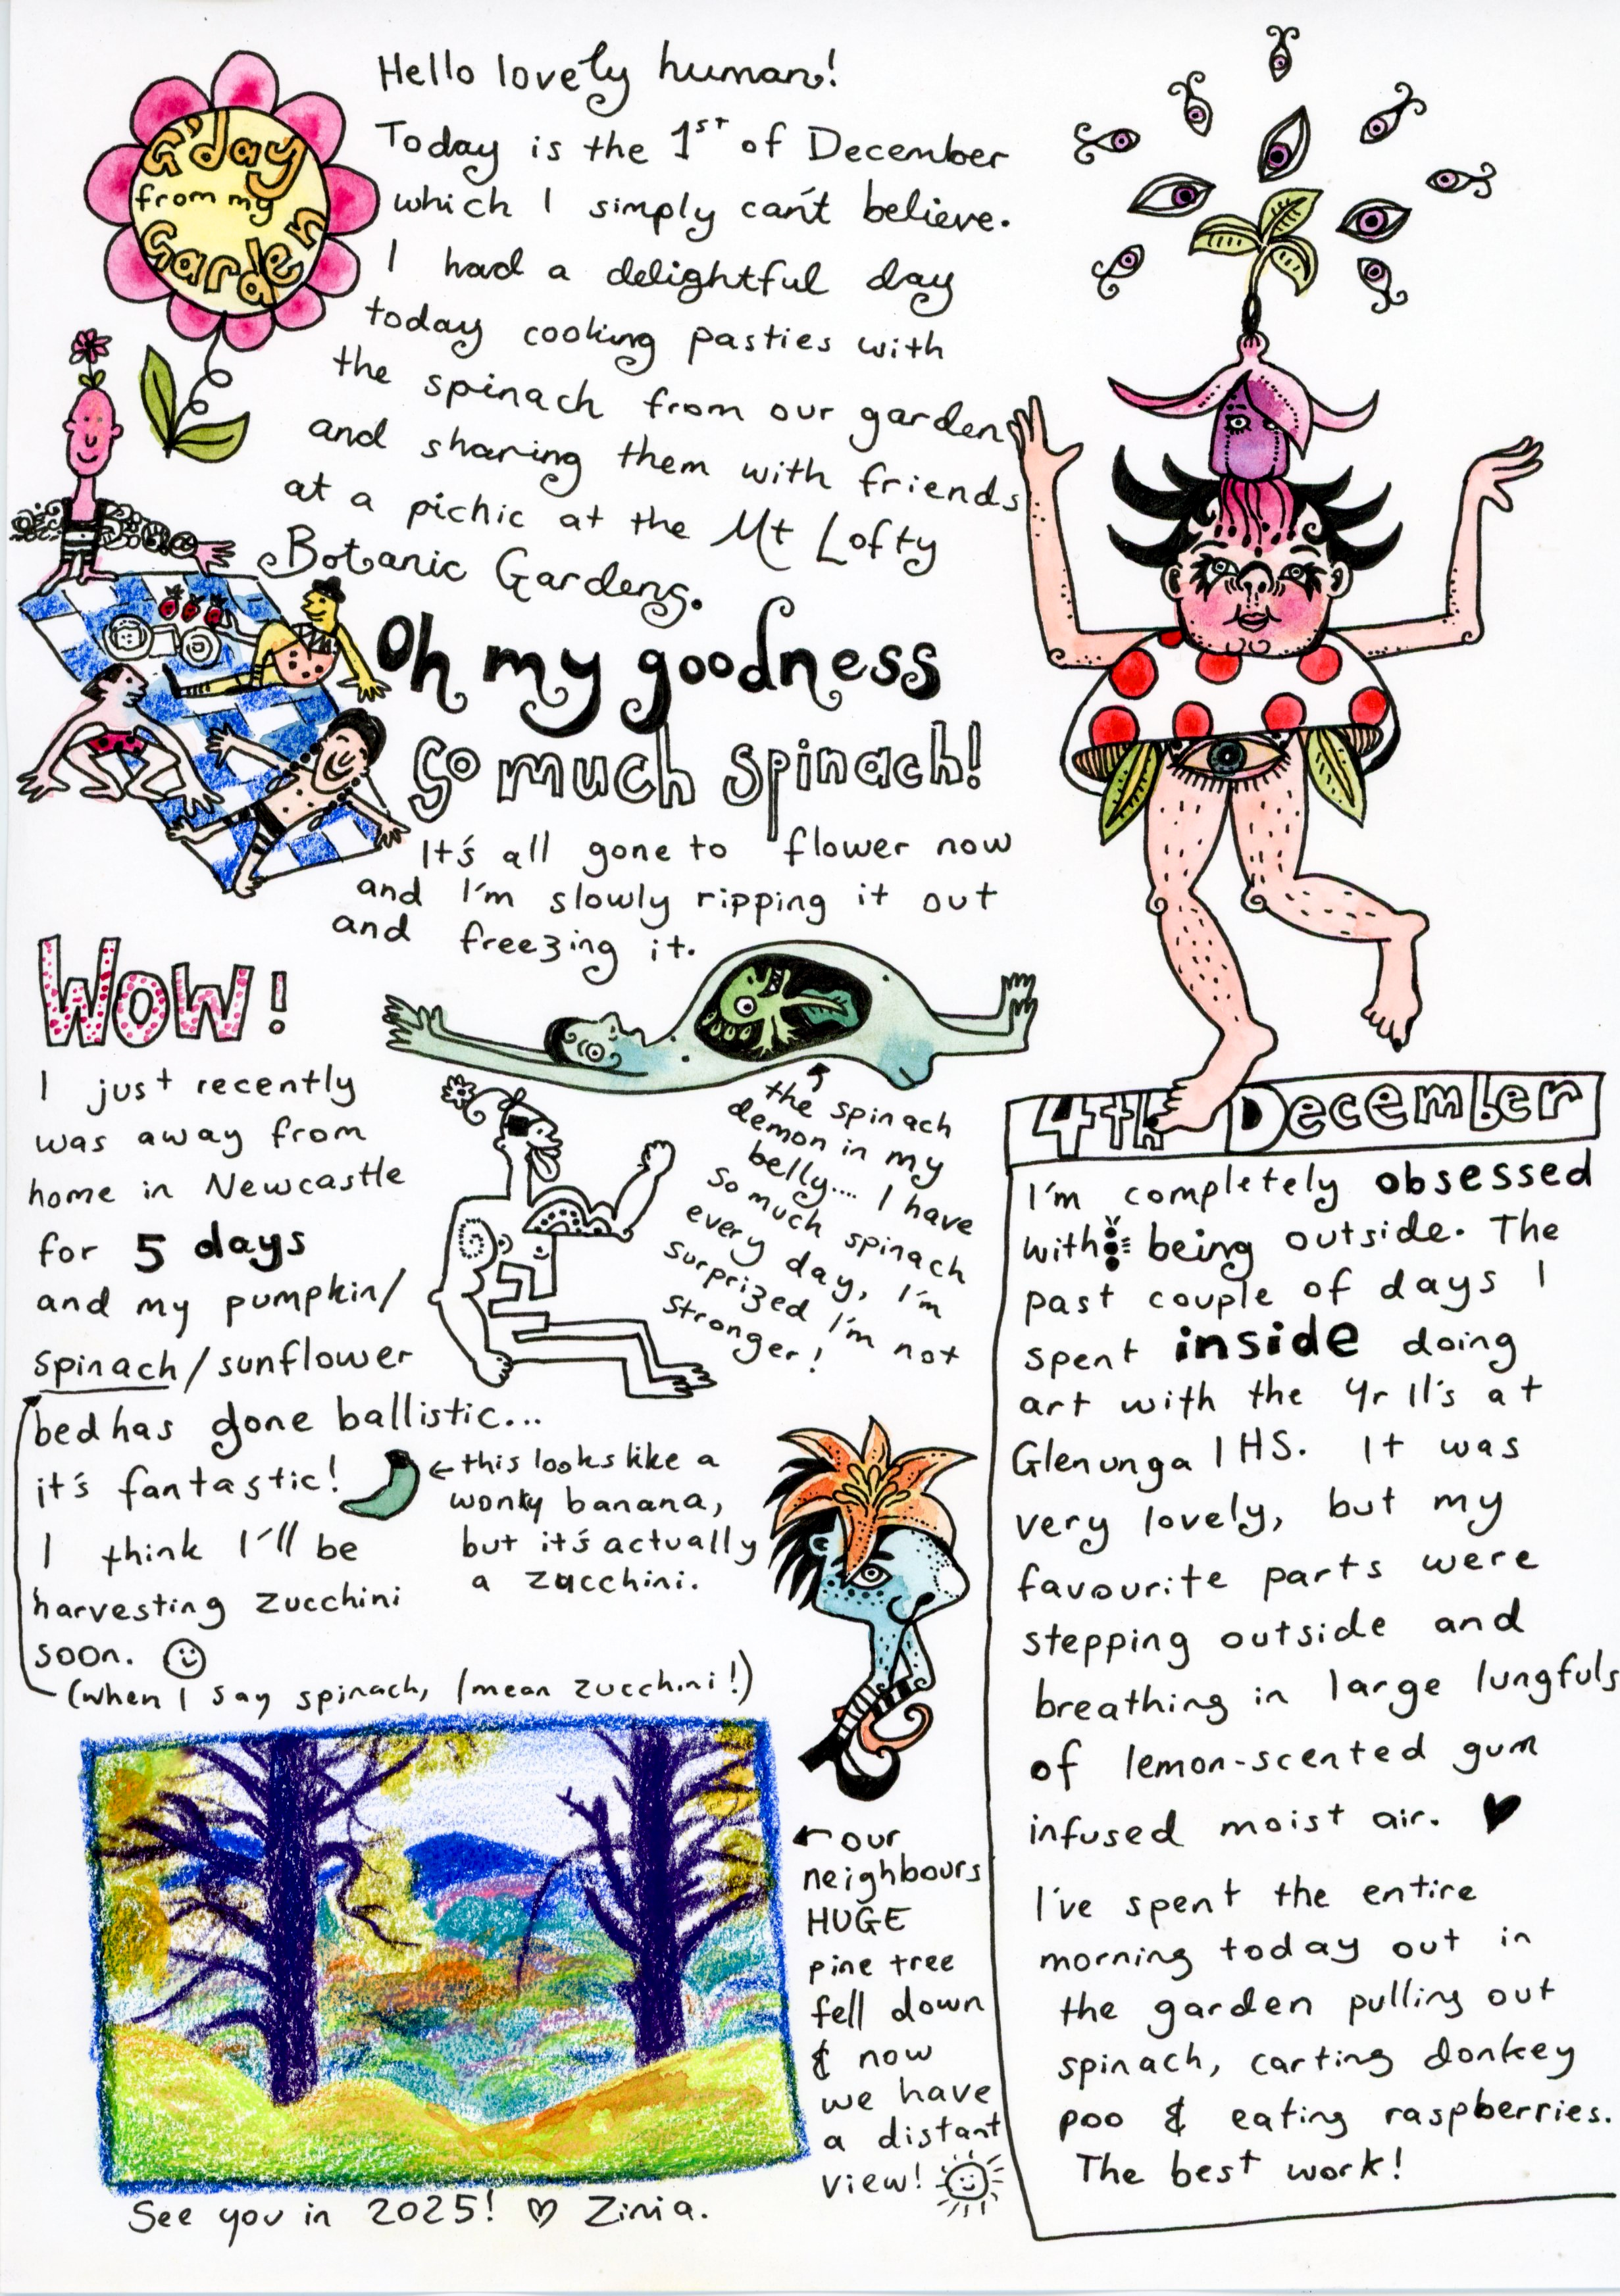 G'day
from my
Garden
Hello lovely human!
Today is the 1st of December
which I simply can't believe.
I had a delightful day
today cooking pasties with
the spinach from our garden
and sharing them with friends
at a picnic at the Mt Lofty
Botanic Gardens.
Oh my goodness
so much spinach!
It's all gone to flower now
and I'm slowly ripping it out
and freezing it.
the spinach
demon in my
belly.... I have
so much spinach
every day, I'm
surprized I'm not
stronger!
WOW!
I just recently
was away from
home in Newcastle
for 5 days
and my pumpkin/
spinach/sunflower
bed has gone ballistic...
it's fantastic!
I think I'll be
harvesting zucchini
soon.
(when I say spinach, I mean zucchini!)
this looks like a
wonky banana,
but it's actually
a zucchini.
our
neighbours
HUGE
pine tree
fell down
& now
we have
a distant
view!
See you in 2025! ♡ Zinia.
4th December
I'm completely obsessed
with being outside. The
past couple of days I
spent inside doing
art with the Yr 11's at
Glenunga IHS. It was
very lovely, but my
favourite parts were
stepping outside and
breathing in large lungfuls
of lemon-scented gum
infused moist air. ♥
I've spent the entire
morning today out in
the garden pulling out
spinach, carting donkey
poo & eating raspberries.
The best work!